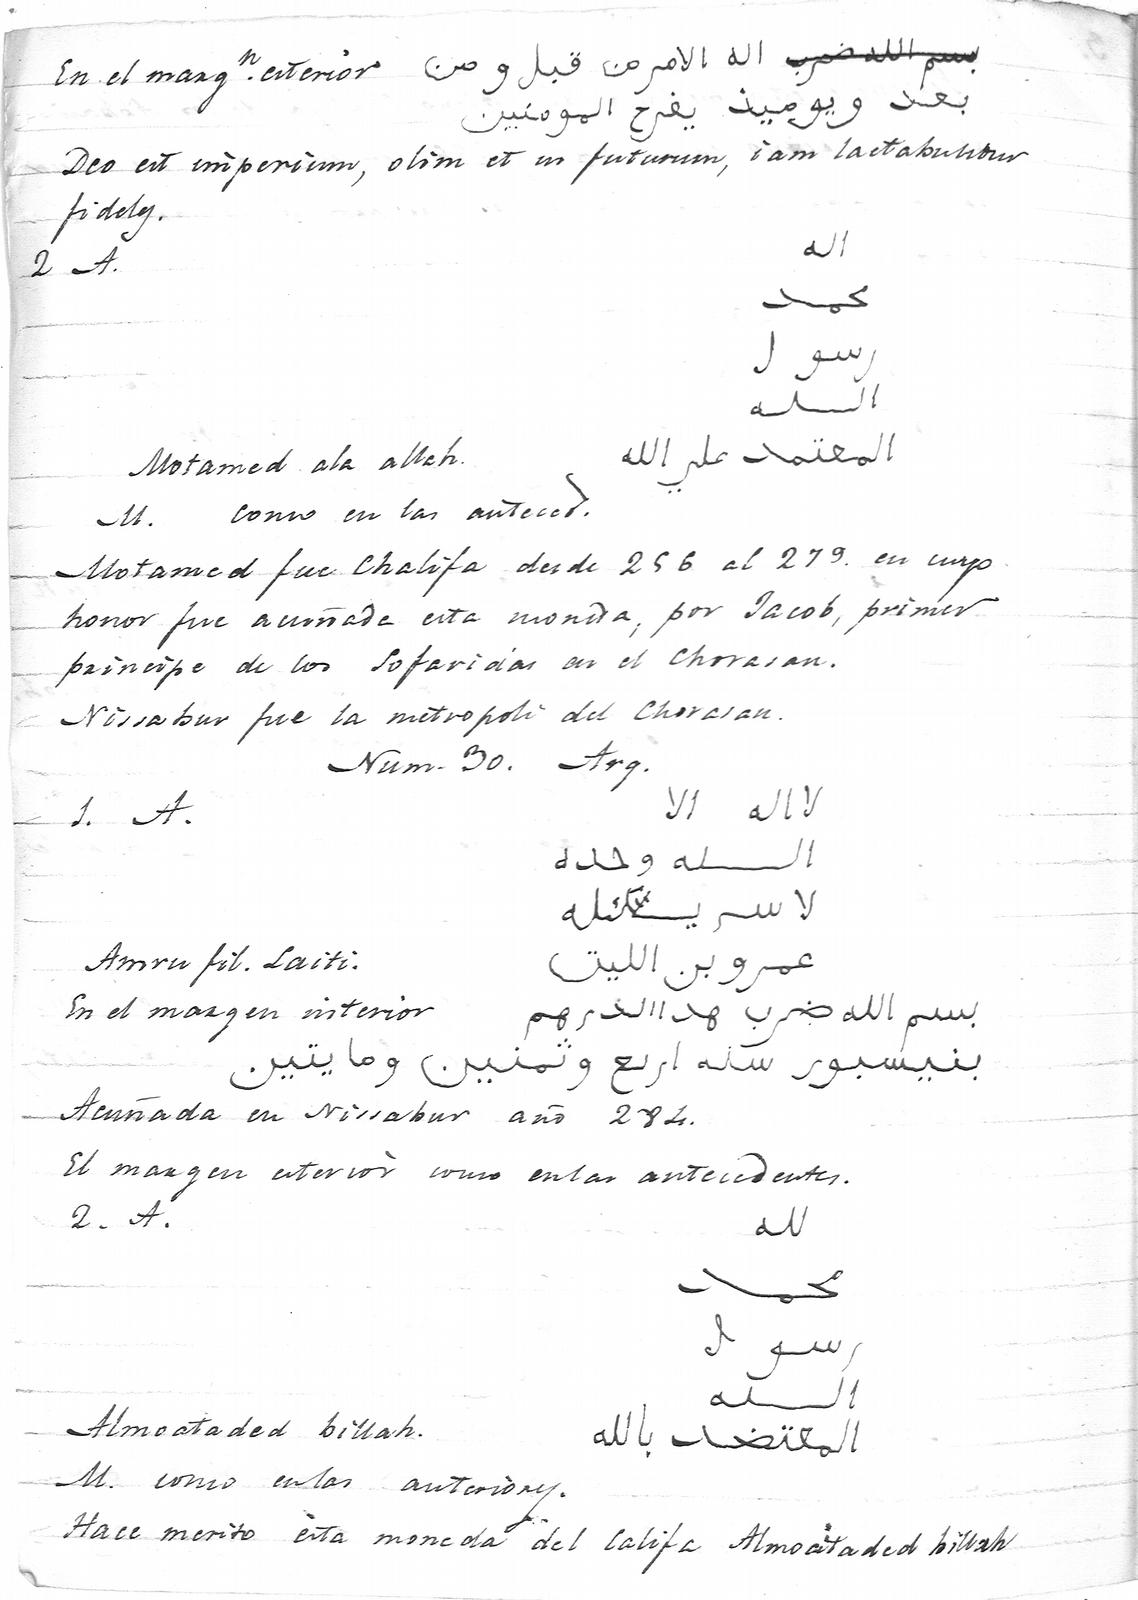 En el margⁿ. exterior ~~بسم الله ضرب~~ اله الامر من قبل و من
بعد ويوميذ يفرح المومنين
Deo est imperium, olim et in futurum, iam laetabuntur
fideles.
2 A.
اله
محمد
رسو ل
الـله
Motamed ala allah. المعتمد علي الله
M. como en las anteced.
Motamed fue Chalifa desde 256 al 279. en cuyo
honor fue acuñada esta moneda, por Jacob, primer
principe de los Sofaridas en el Chorasan.
Nissabur fue la metropoli del Chorasan.
Num. 30. Arg.
1. A. لا اله الا
الـله وحده
لا سريـك له
Amru fil. Laiti. عمرو بن الليث
En el margen interior بسم الله ضرب هدا الدرهم
بنيسبور سنه اربع وثمنين ومايتين
Acuñada en Nissabur año 284.
El margen exterior como en las antecedentes.
2. A. لله
محمد
رسو ل
الـله
Almoataded billah. المعتضد بالله
M. como en las anteriores.
Hace merito esta moneda del Califa Almoataded billah